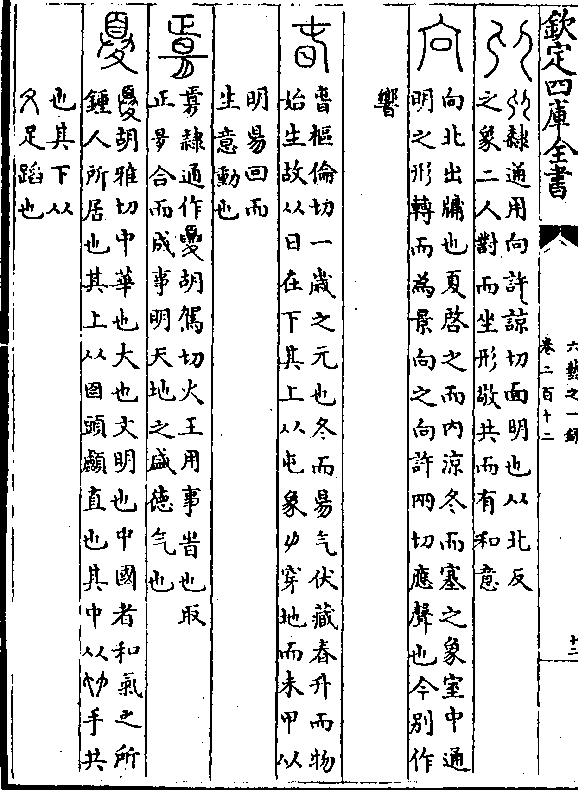 欽定四庫全書
六藝之一録
卷二百十二
隸通用向許諒切面明也从北反
之象二人對而坐形敬共而有和意
向
向北出牖也夏啓之而内涼冬而塞之象室中通
明之形轉而為景向之向許兩切應聲也今別作
響
旾
旾樞倫切一歲之元也冬而昜气伏藏春升而物
始生故从日在下其上从屯象屮穿地而未甲以
明昜回而
生意動也
隸通作夓胡駕切火王用事旹也取
正合而成事明天地之盛德气也
夓
夓胡雅切中華也大也文明也中國者和氣之所
鍾人所居也其上从𦣻頭顱直也其中从手共
也其下从
夊足蹈也